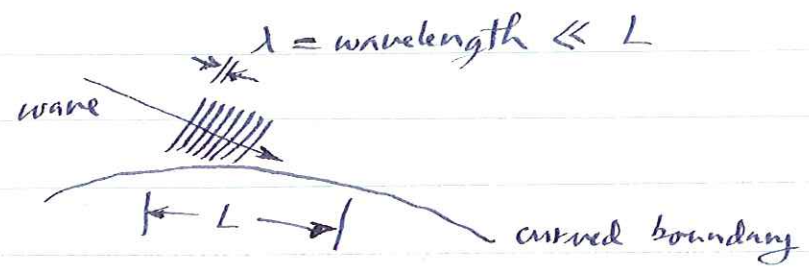 λ = wavelength ≪ L
wave
L
curved boundary